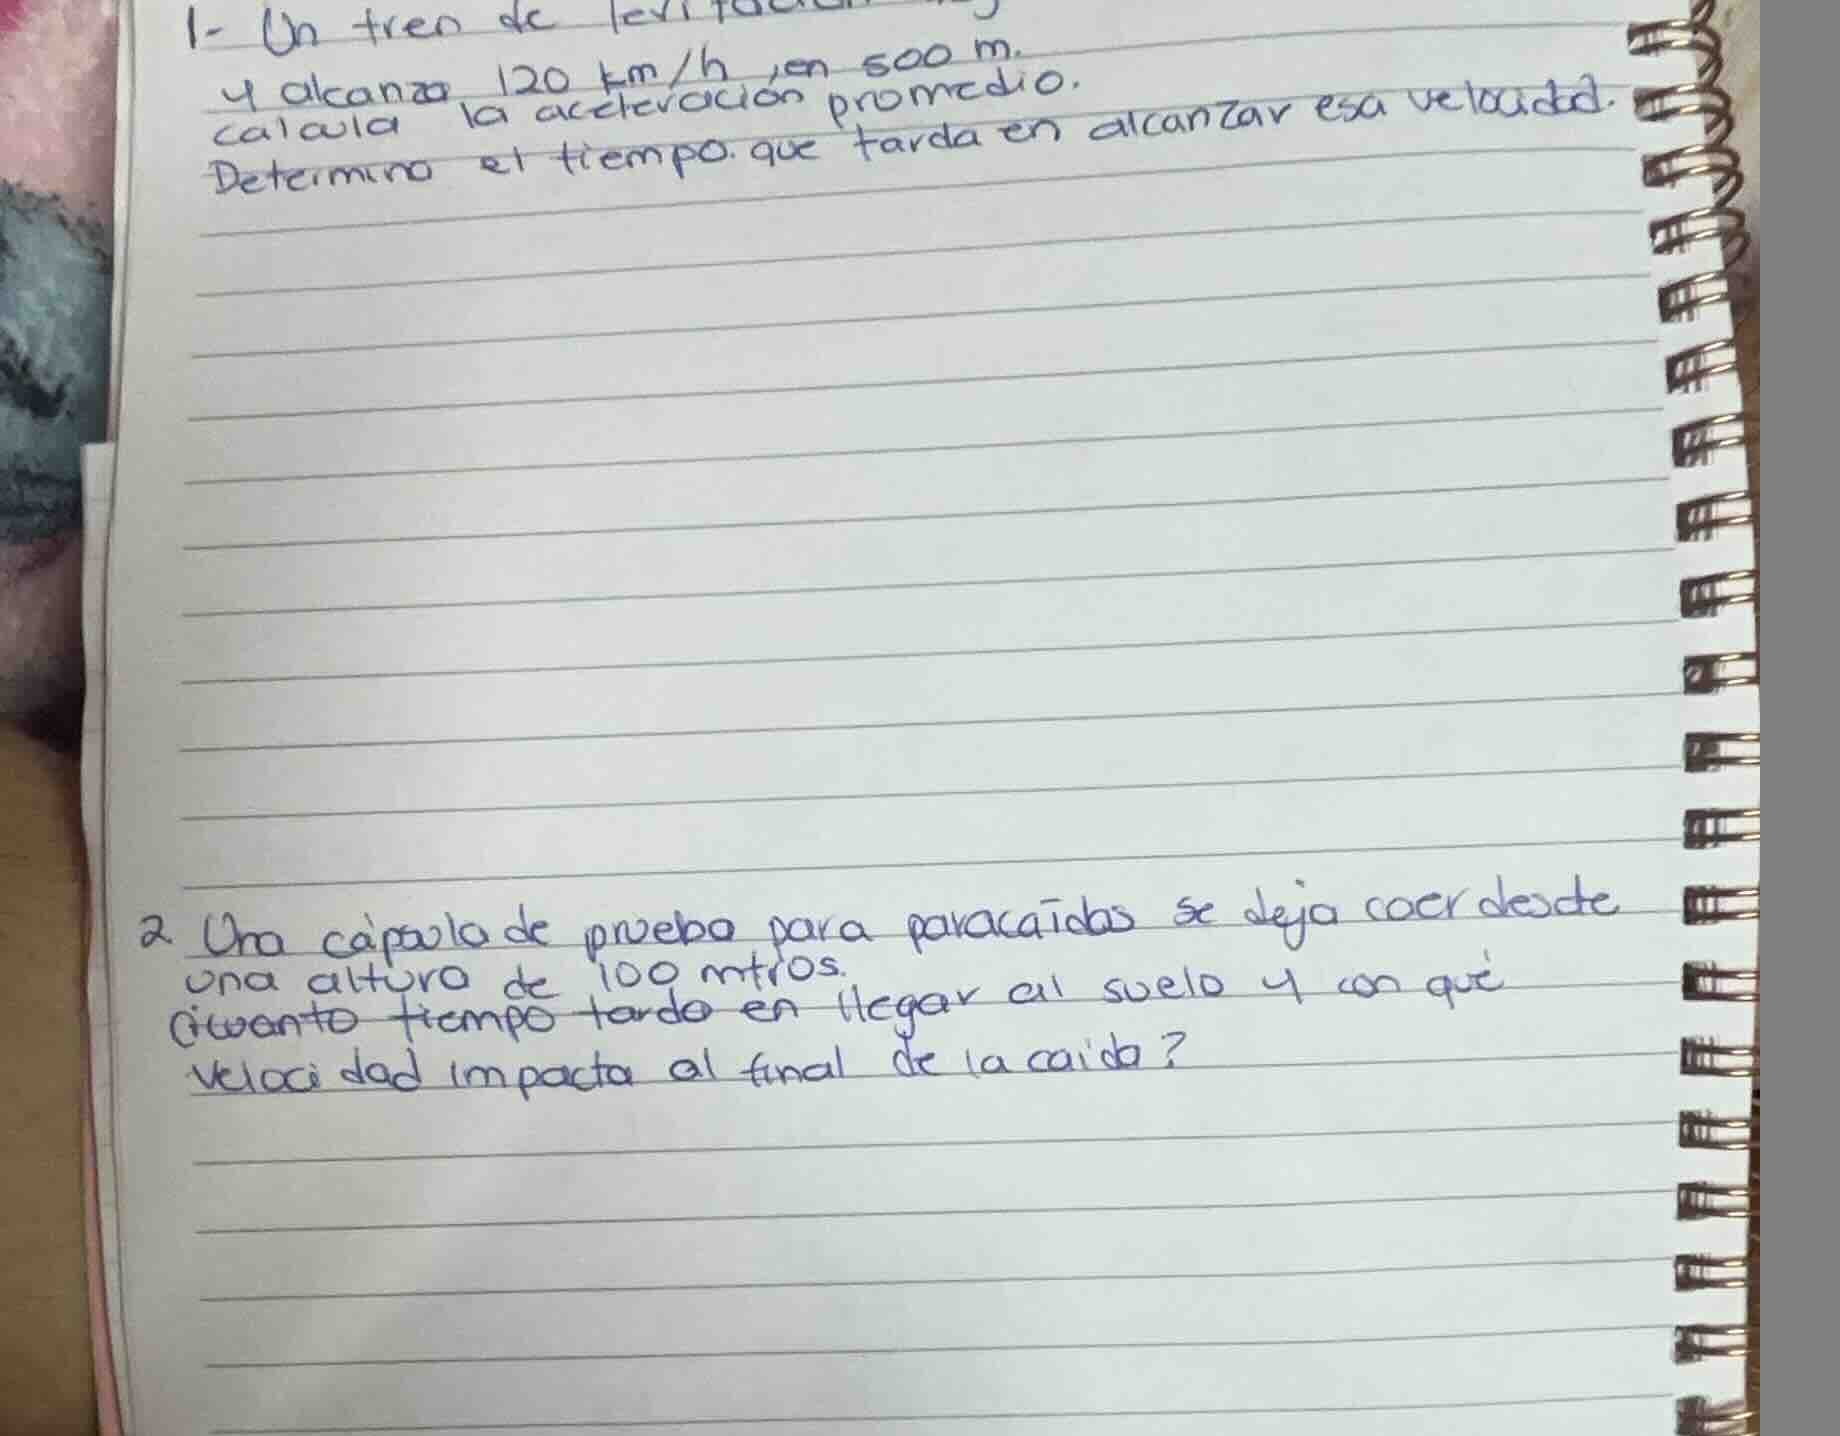 1- Un tren de
y alcanza 120 km/h, en 500 m.
calcula la aceleración promedio.
Determina el tiempo. que tarda en alcanzar esa velocidad.
2 Una cápsula de prueba para paracaídas se deja caer desde
una altura de 100 mtros.
¿cuanto tiempo tarda en llegar al suelo y con qué
velocidad impacta al final de la caida?